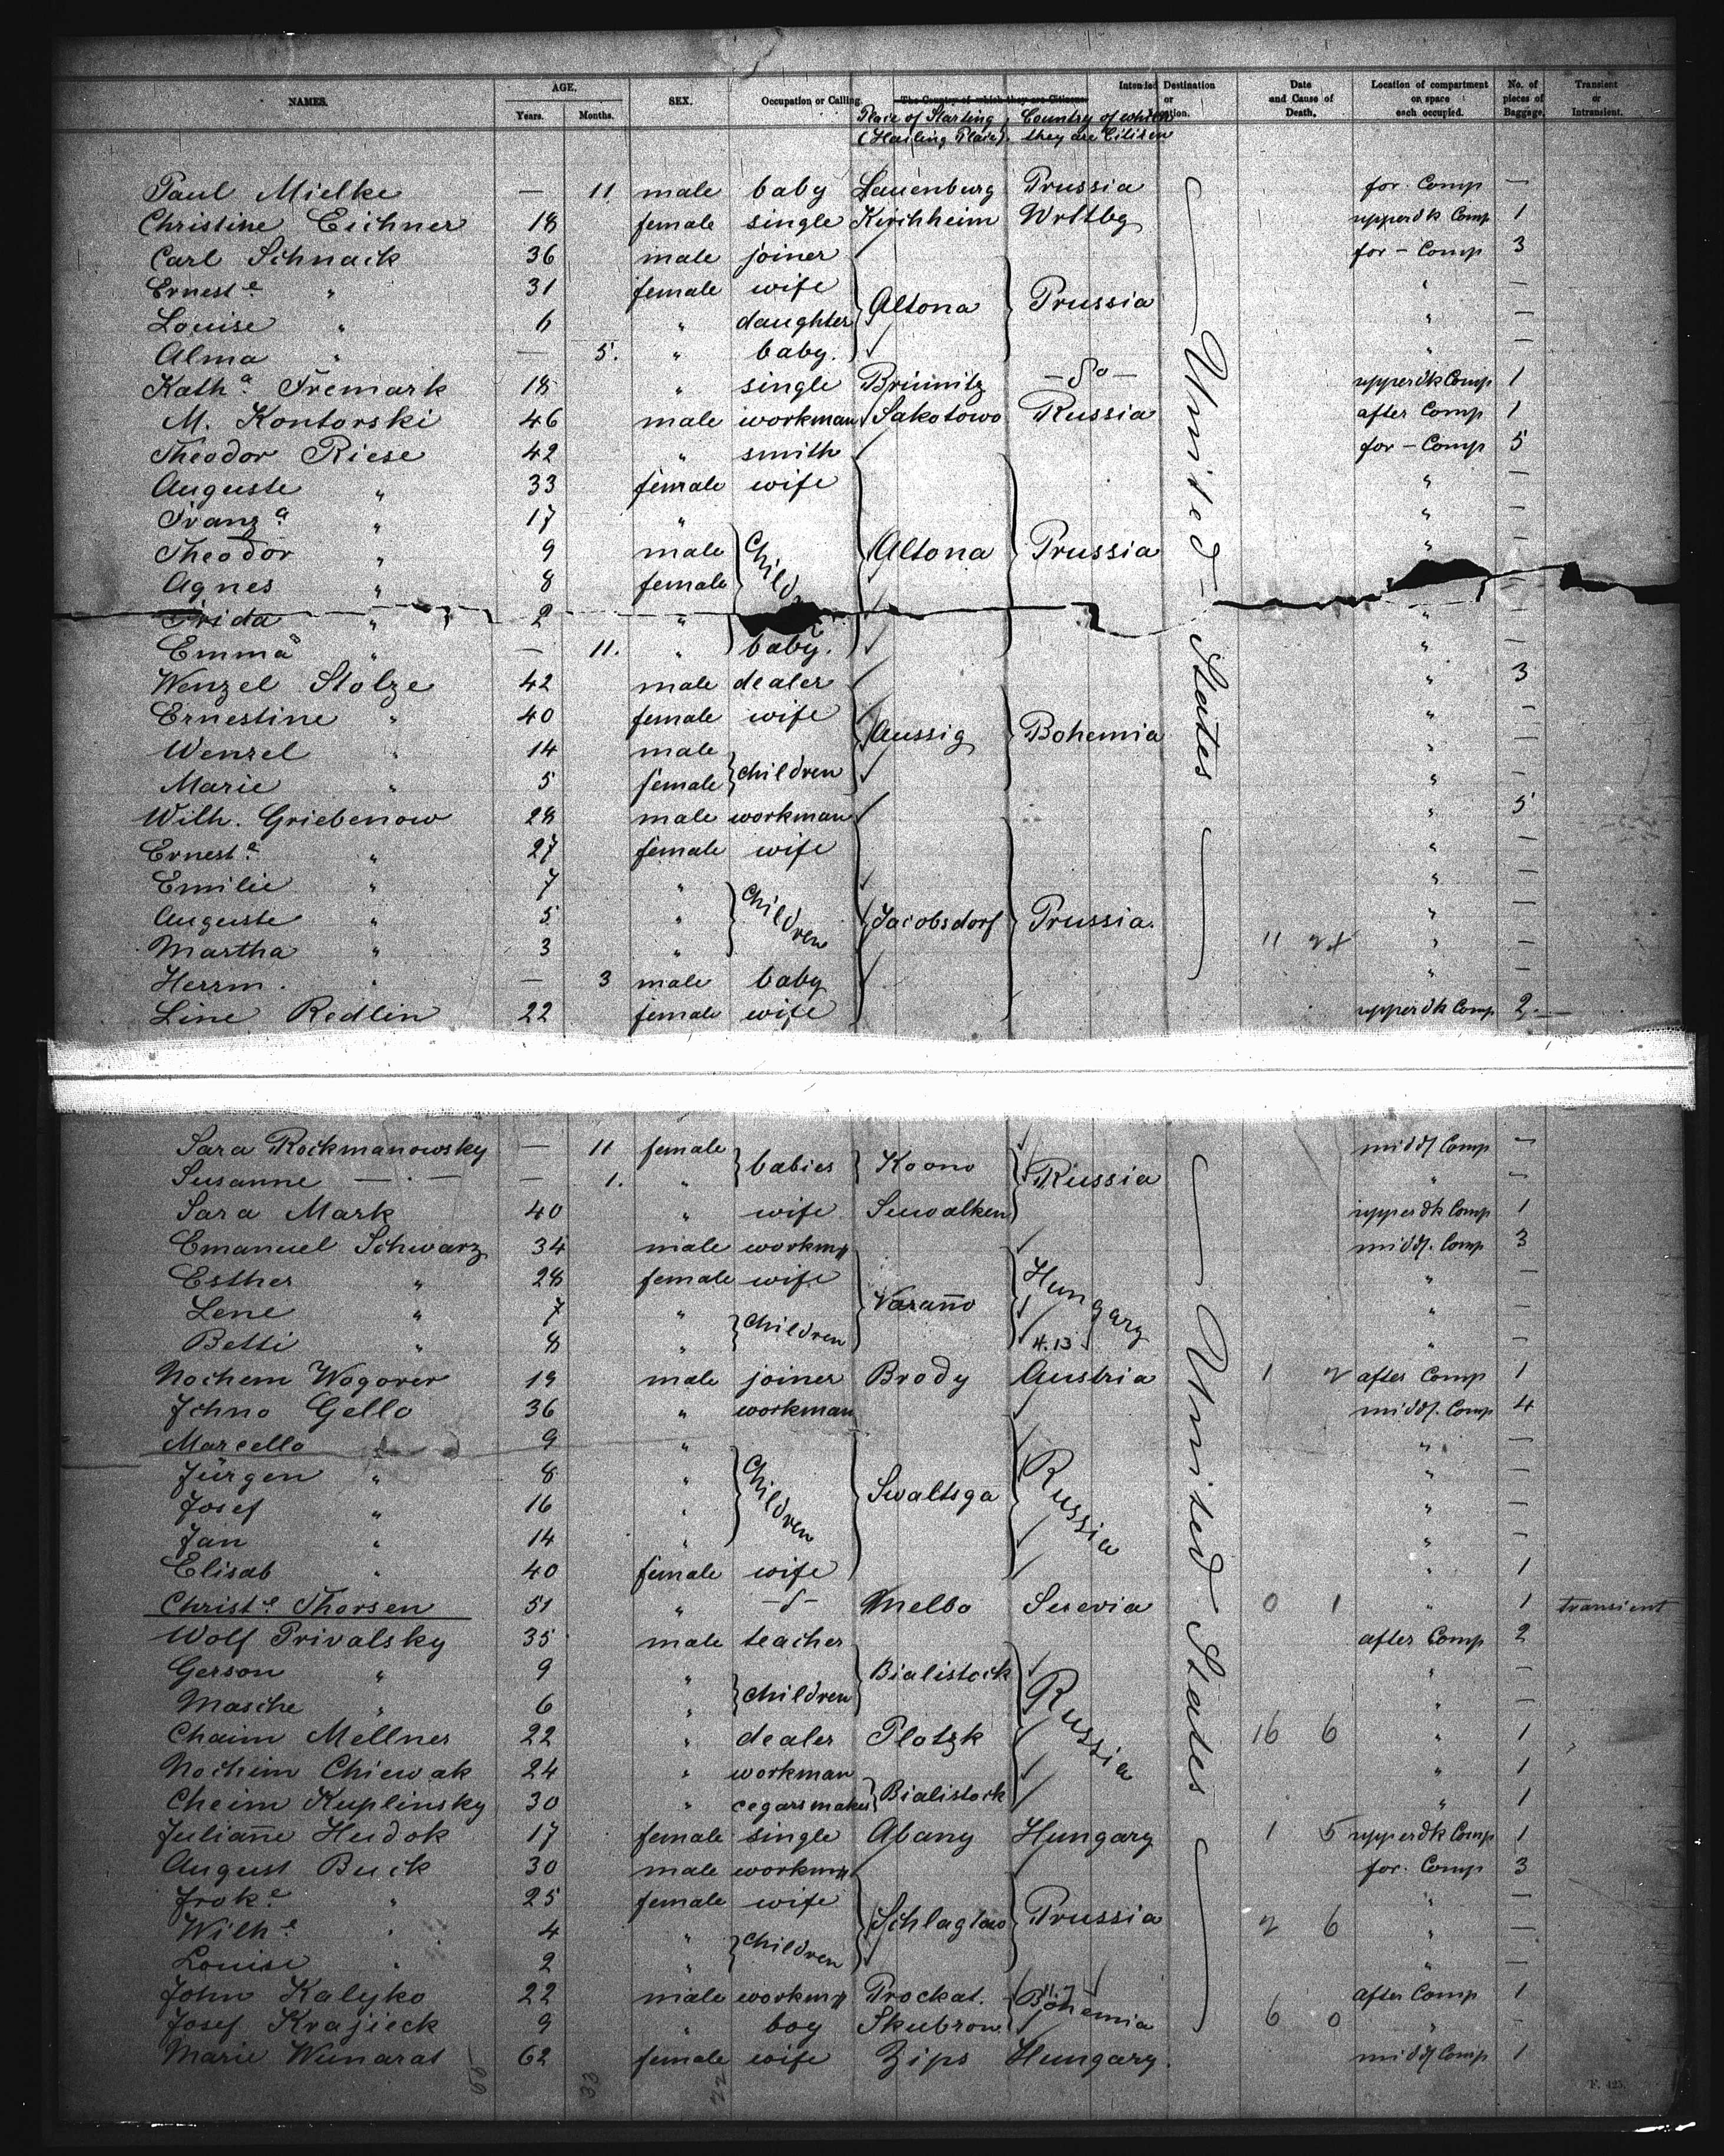 NAMES. AGE. Years. Months. SEX. Occupation or Calling. The Country of which they are Citizens. Intended Destination or Location. Date and Cause of Death. Location of compartment or space each occupied. No. of pieces of Baggage. Transient or Intransient.
Place of Starting (Hailing Place). Country of which they are Citizen
Paul Mielke — 11. male baby Lauenburg Prussia for. Comp —
Christine Eichner 18 female single Kirchheim Wrttbg upperdk Comp 1
Carl Schnack 36 male joiner for - Comp 3
Ernest e " 31 female wife " —
Louise " 6 " daughter Altona Prussia " —
Alma " — 5. " baby. " —
Kath a. Fremark 18 " single Briinnitz — do — upperdk Comp 1
M. Kontorski 46 male workman Sakotowo Russia after Comp 1
Theodor Riese 42 " smith for - Comp 5
Auguste " 33 female wife " —
Franz a " 17 " " —
Theodor " 9 male Child Altona Prussia " —
Agnes " 8 female —
Frida " 2 " " —
Emma " — 11. " baby. " —
Wenzel Stolze 42 male dealer " 3
Ernestine " 40 female wife Aussig Bohemia " —
Wenzel " 14 male children " —
Marie " 5 female " —
Wilh. Griebenow 28 male workman " 5
Ernest e " 27 female wife " —
Emilie " 7 " children " —
Auguste " 5 " Jacobsdorf Prussia. " —
Martha " 3 " 11 24 " —
Herrm. " — 3 male baby " —
Line Redlin 22 female wife upperdk Comp 2. —
United - States
Sara Rockmanowsky — 11 female babies Koono Russia middl Comp —
Susanne — . — — 1. " " —
Sara Mark 40 " wife Suwalken upperdk Comp 1
Emanuel Schwarz 34 male workm middl. Comp 3
Esther " 28 female wife Hungary " —
Lene " 7 " children Varanno " —
Betti " 8 " H.13 " —
Nochem Wogover 19 male joiner Brody Austria 1 2 after Comp 1
Johno Gello 36 " workman middl. Comp 4
Marcello " 9 " " —
Jürgen " 8 " Children Swaltsga Russia " —
Josef " 16 " " —
Jan " 14 " " —
Elisab " 40 female wife " 1
Christ e. Thorsen 51 " — d — Melbo Suevia 0 1 " 1 transient
Wolf Privalsky 35 male teacher after Comp 2
Gerson " 9 " children Bialistock Russia " —
Masche " 6 " " —
Chaim Mellner 22 " dealer Plotzk 16 6 " 1
Nochim Chiewak 24 " workman " 1
Cheim Kuplinsky 30 " cegarsmaker Bialistock " 1
Julianne Hudok 17 female single Abany Hungary 1 5 upperdk Comp 1
August Buck 30 male workm for. Comp 3
Frok e. " 25 female wife Schlaglow Prussia " —
Wilh e. " 4 " children 2 6 " —
Louise " 2 " " —
John Kalyko 22 male workm Prockat. Bohemia after Comp 1
Josef Krajieck 9 " boy Skubrow 6 0 " —
Marie Wunarat 62 female wife Zips Hungary. middl Comp 1
United States
33 22
F. 425.